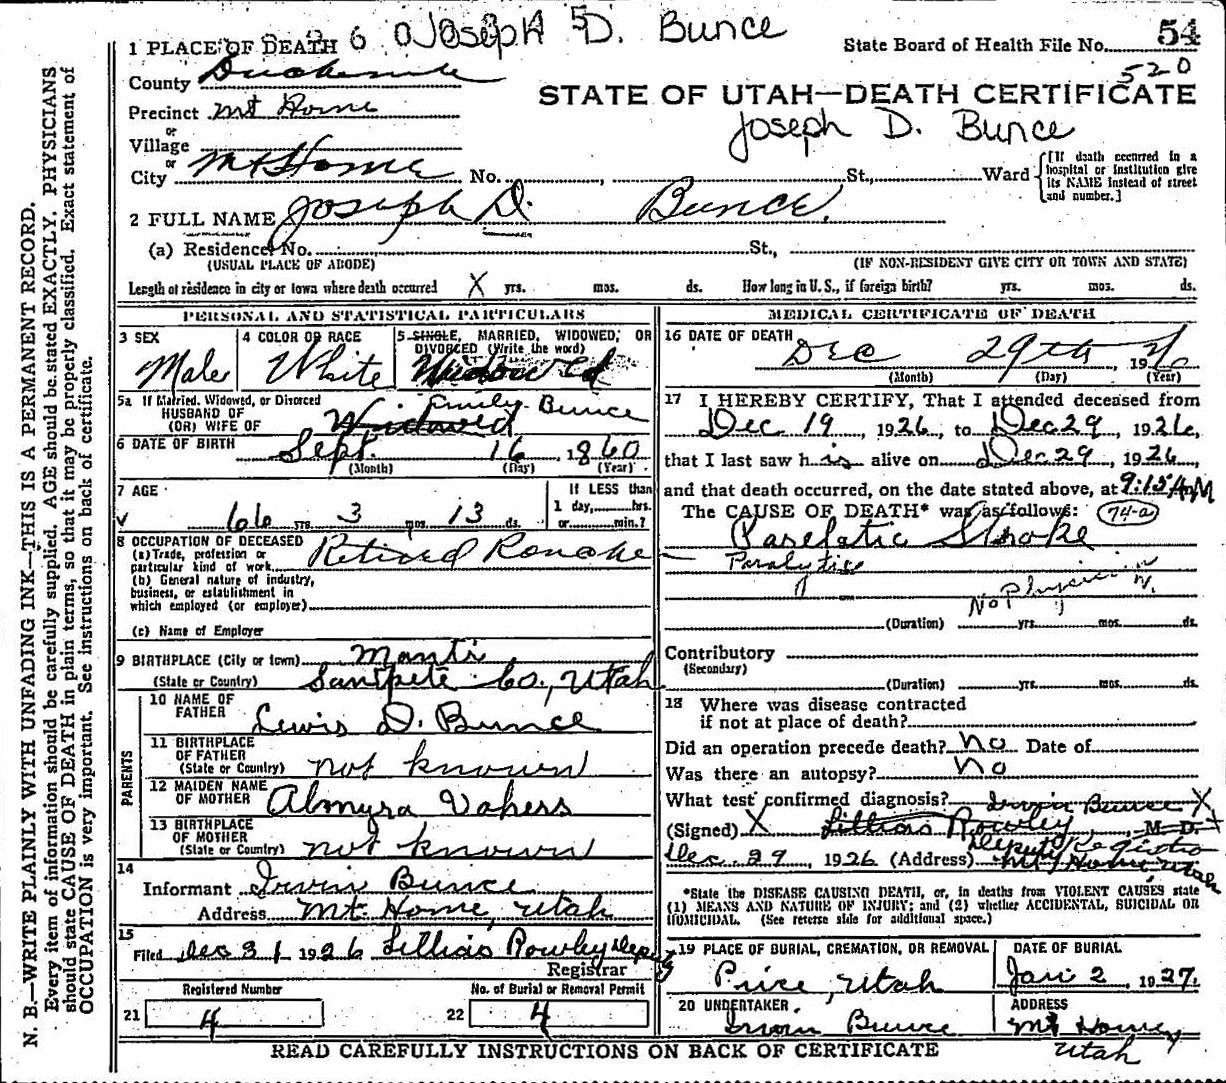 Joseph D. Bunce
1 PLACE OF DEATH
State Board of Health File No. 54
520
County Duchesne
STATE OF UTAH—DEATH CERTIFICATE
Precinct Mt Home
Joseph D. Bunce
or
Village
or
City Mt Home No. , St., Ward
[If death occurred in a hospital or institution give its NAME instead of street and number.]
2 FULL NAME Joseph D. Bunce.
(a) Residence. No. St.,
(USUAL PLACE OF ABODE) (IF NON-RESIDENT GIVE CITY OR TOWN AND STATE)
Length of residence in city or town where death occurred X yrs. mos. ds. How long in U. S., if foreign birth? yrs. mos. ds.
PERSONAL AND STATISTICAL PARTICULARS
3 SEX
Male
4 COLOR OR RACE
White
5 SINGLE, MARRIED, WIDOWED, OR
DIVORCED (Write the word)
Widowed
5a If Married, Widowed, or Divorced
HUSBAND OF Emily Bunce
(OR) WIFE OF Widowed
6 DATE OF BIRTH Sept. 16, 1860
(Month) (Day) (Year)
7 AGE
66 yrs. 3 mos. 13 ds.
If LESS than
1 day,......hrs.
or......min.?
8 OCCUPATION OF DECEASED
(a) Trade, profession or
particular kind of work Retired
(b) General nature of industry,
business, or establishment in
which employed (or employer)
(c) Name of Employer
9 BIRTHPLACE (City or town) Manti
(State or Country) Sanpete Co., Utah
PARENTS
10 NAME OF
FATHER Lewis D. Bunce
11 BIRTHPLACE
OF FATHER
(State or Country) not known
12 MAIDEN NAME
OF MOTHER Almyra
13 BIRTHPLACE
OF MOTHER
(State or Country) not known
14
Informant Irvin Bunce
Address Mt. Home, Utah
15
Filed Dec 31 1926 Lillias Rowley Deputy
Registrar
Registered Number
21 4
No. of Burial or Removal Permit
22 4
MEDICAL CERTIFICATE OF DEATH
16 DATE OF DEATH
Dec 29th 1926
(Month) (Day) (Year)
17 I HEREBY CERTIFY, That I attended deceased from
Dec 19, 1926, to Dec 29, 1926,
that I last saw h is alive on Dec 29, 1926,
and that death occurred, on the date stated above, at 9:15 AM
The CAUSE OF DEATH* was as follows: 74-a
Parelatic Stroke
Paralytic
No Physician
(Duration) yrs. mos. ds.
Contributory
(Secondary)
(Duration) yrs. mos. ds.
18 Where was disease contracted
if not at place of death?
Did an operation precede death? No Date of
Was there an autopsy? No
What test confirmed diagnosis? Irvin Bunce X
(Signed) X Lillias Rowley, M. D.
Deputy Registrar
Dec 29, 1926 (Address) Mt Home, Utah
*State the DISEASE CAUSING DEATH, or, in deaths from VIOLENT CAUSES state
(1) MEANS AND NATURE OF INJURY; and (2) whether ACCIDENTAL, SUICIDAL OR
HOMICIDAL. (See reverse side for additional space.)
19 PLACE OF BURIAL, CREMATION, OR REMOVAL
Price, Utah
DATE OF BURIAL
Jan 2, 1927.
20 UNDERTAKER
Irvin Bunce
ADDRESS
Mt Home,
Utah
READ CAREFULLY INSTRUCTIONS ON BACK OF CERTIFICATE
N. B.—WRITE PLAINLY WITH UNFADING INK—THIS IS A PERMANENT RECORD.
Every item of information should be carefully supplied. AGE should be stated EXACTLY. PHYSICIANS
should state CAUSE OF DEATH in plain terms, so that it may be properly classified. Exact statement of
OCCUPATION is very important. See instructions on back of certificate.